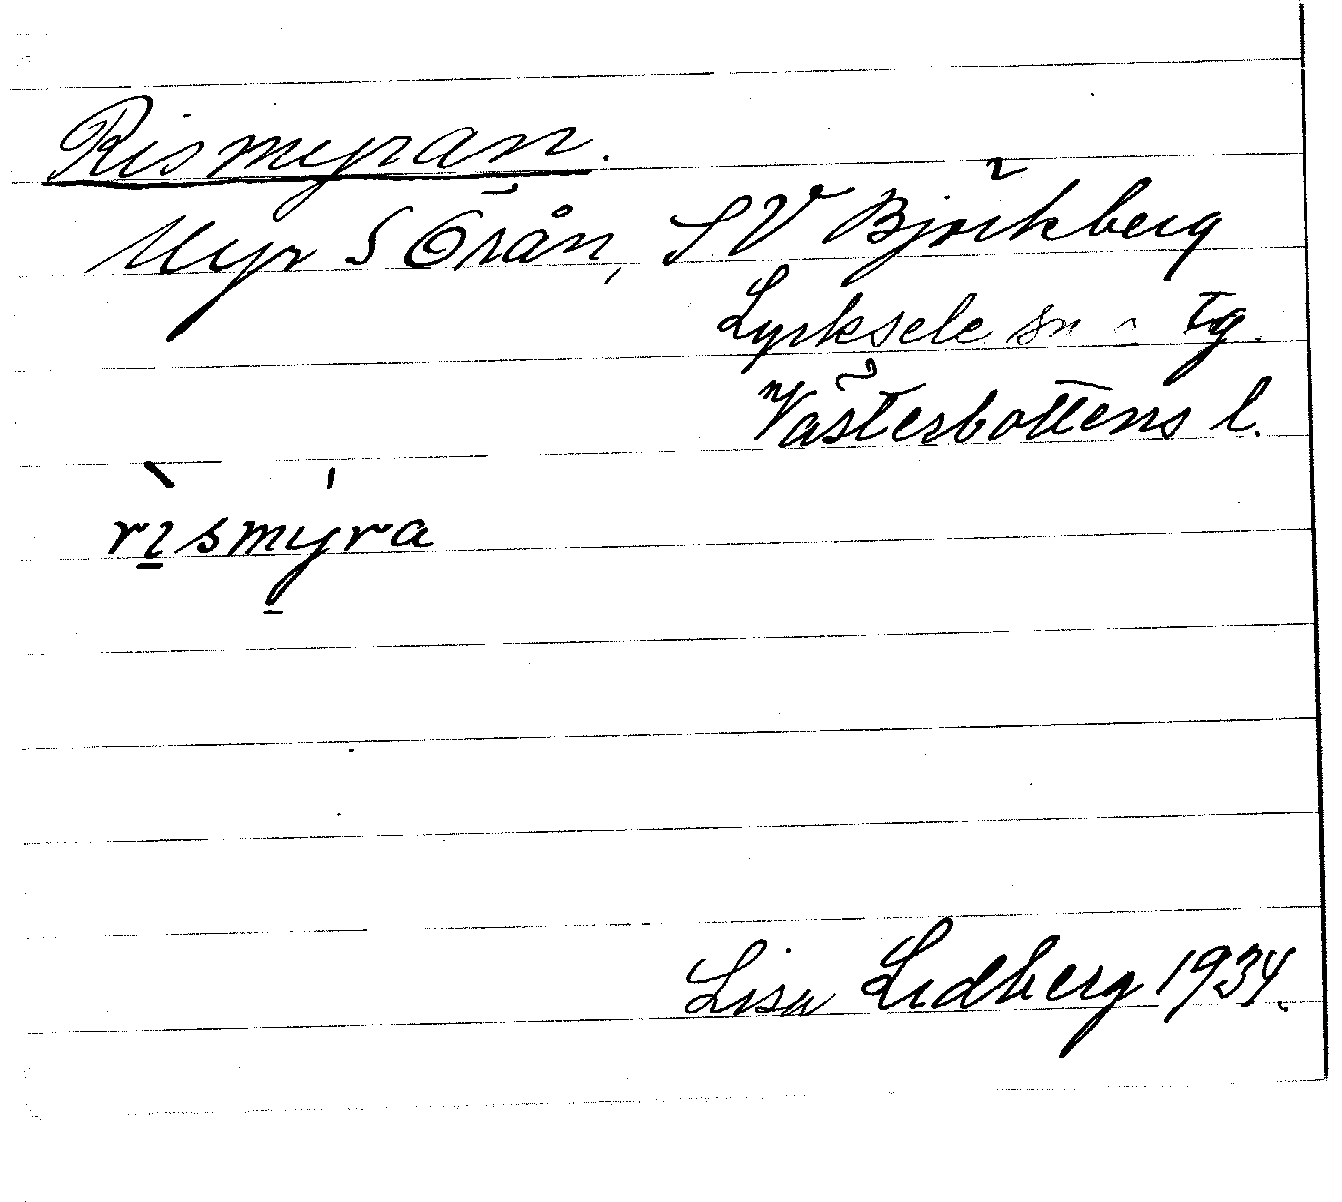 Rismyran.
Myr S Örån, SV Björkberg
Lycksele sn o Tg.
Västerbottens l.
rìsmýra
Lisa Lidberg 1934.